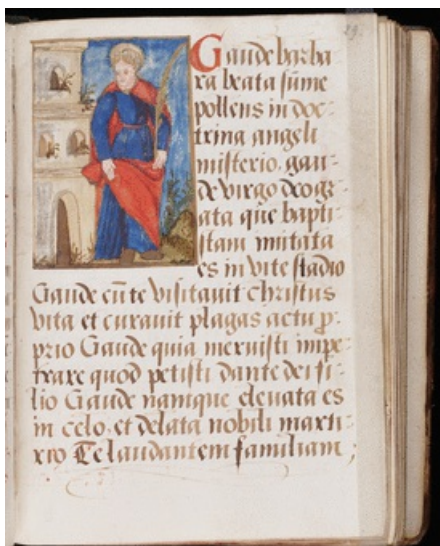 29.
Gaude barba
ra beata sūme
pollens in doc-
trina angeli
misterio. gau-
de virgo deo gr-
ata que bapti-
stam imitata
es in vite stadio
Gaude cū te visitavit christus
vita et curavit plagas actu p̱-
prio Gaude quia meruisti impe-
trare quod petisti dante dei fi-
lio Gaude namque elevata es
in celo. et delata nobili marti-
rio Te laudantem familiam ;